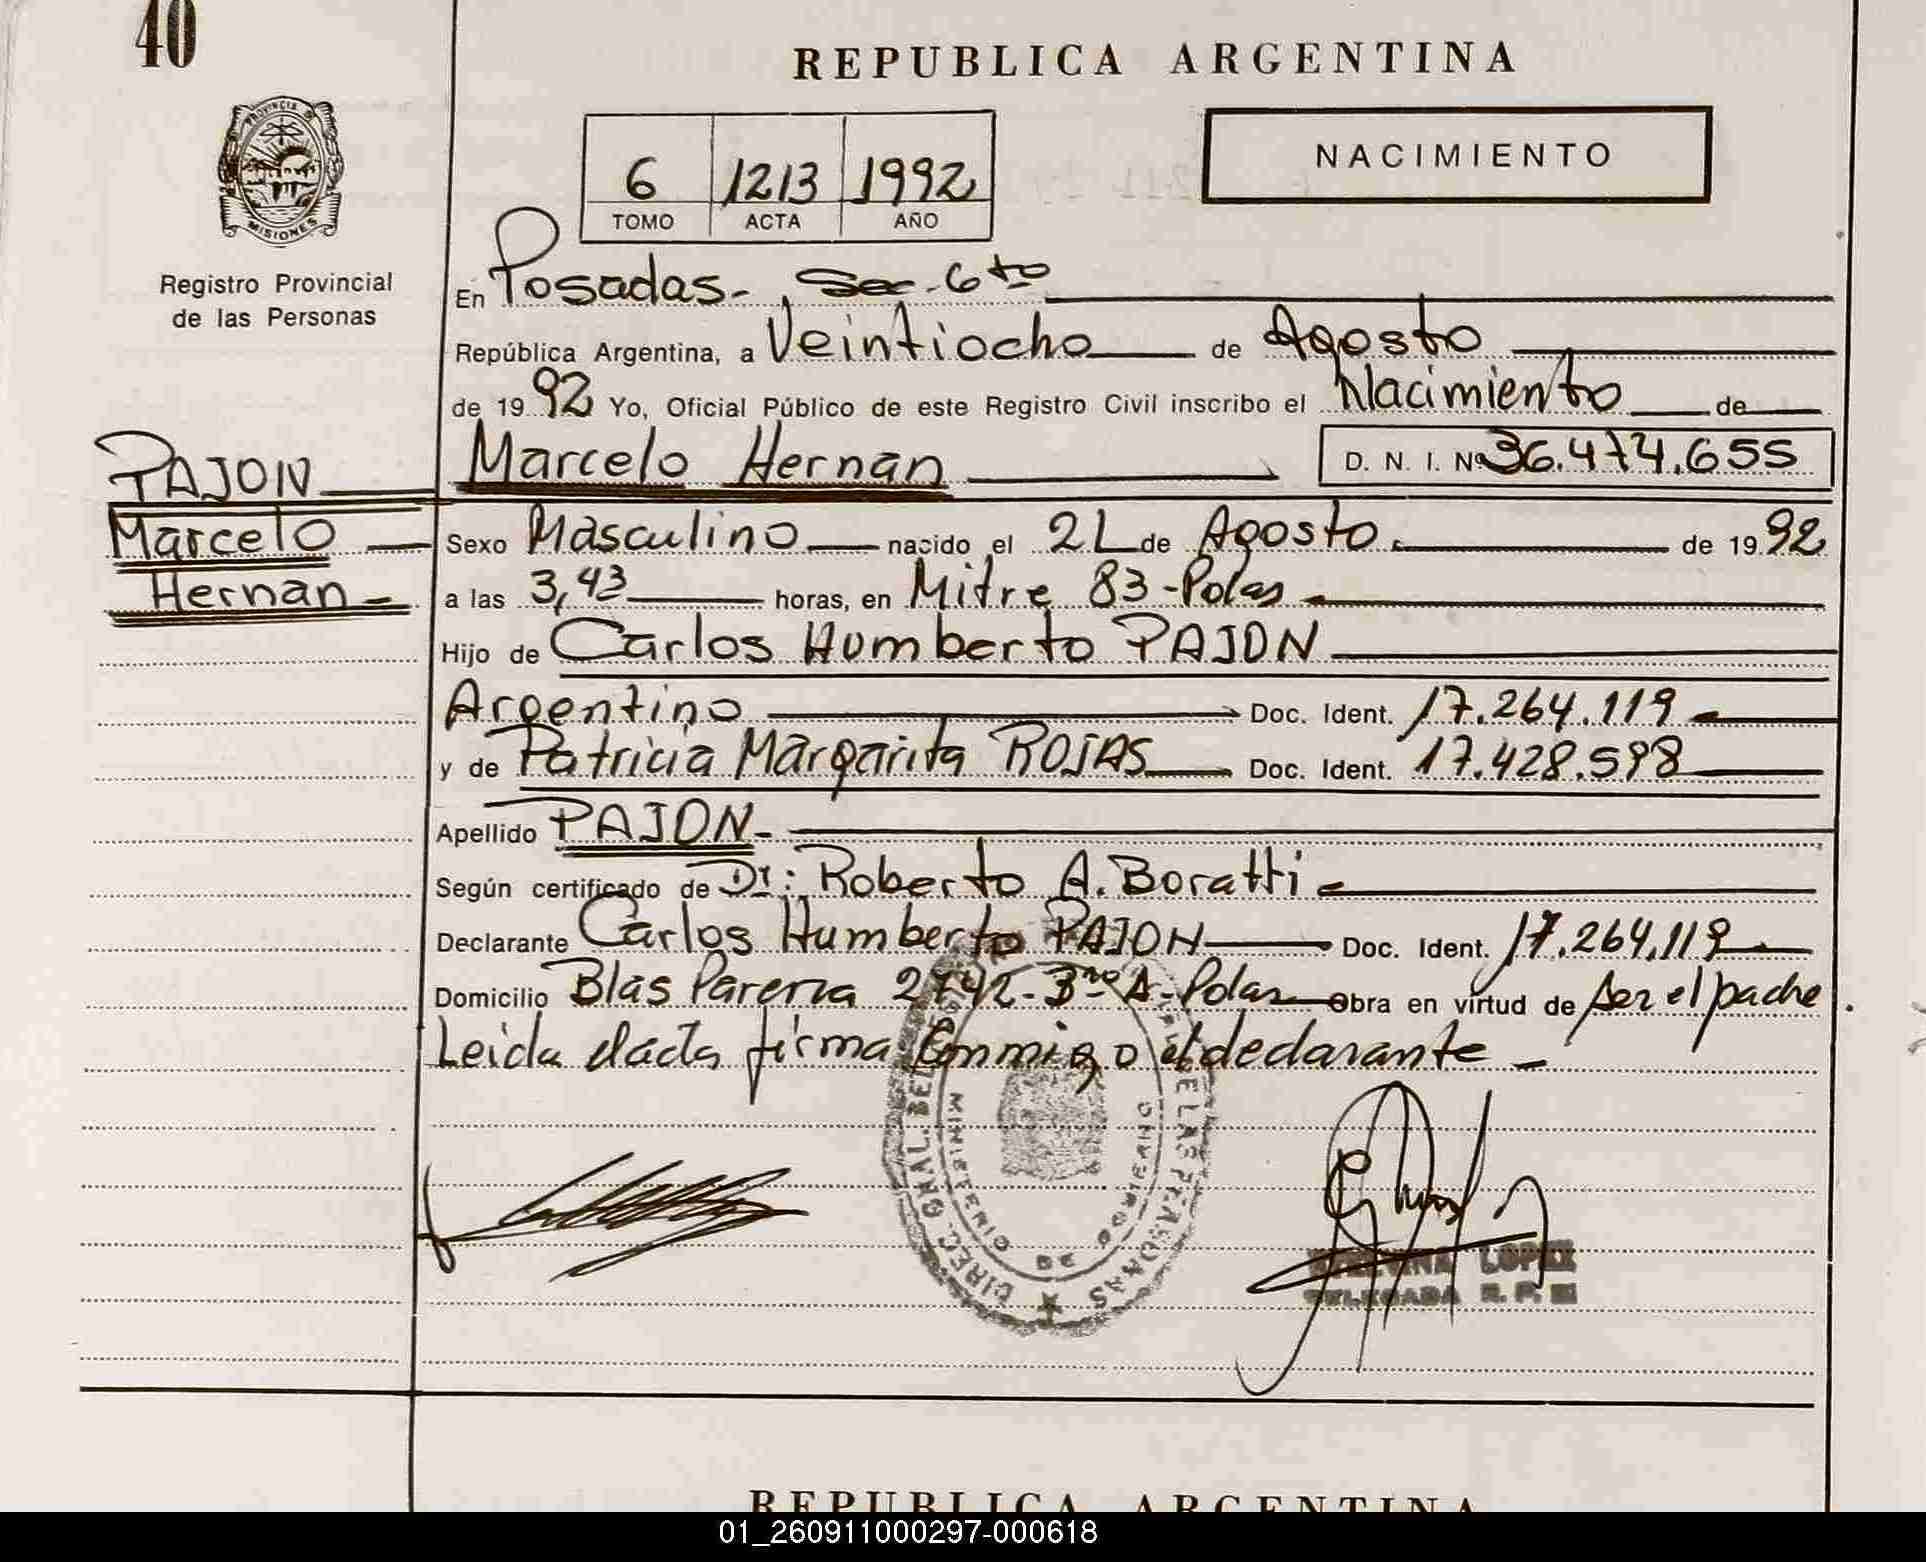 40
REPUBLICA ARGENTINA
PROVINCIA DE
MISIONES
Registro Provincial
de las Personas
6 1213 1992
TOMO ACTA AÑO
NACIMIENTO
En Posadas-, Sec-6to
República Argentina, a Veintiocho de Agosto
de 1992 Yo, Oficial Público de este Registro Civil inscribo el Nacimiento de
PAJON
Marcelo
Hernan-
Marcelo Hernan D. N. I. Nº 36.474.655
Sexo Masculino nacido el 21 de Agosto. de 1992
a las 3,43 horas, en Mitre 83-Pdas
Hijo de Carlos Humberto PAJON
Argentino Doc. Ident. 17.264.119
y de Patricia Margarita ROJAS Doc. Ident. 17.428.598
Apellido PAJON-
Según certificado de Dr: Roberto A. Boratti
Declarante Carlos Humberto PAJON Doc. Ident. 17.264.119
Domicilio Blas Parera 2742-3ro A-Pdas Obra en virtud de ser el padre
Leida el acta firma Conmigo el declarante-
DIREC. GNAL. DE LAS PERSONAS
MINISTERIO DE GOBIERNO
LOPEZ
DELEGADA R. P.
REPUBLICA ARGENTINA
01_260911000297-000618